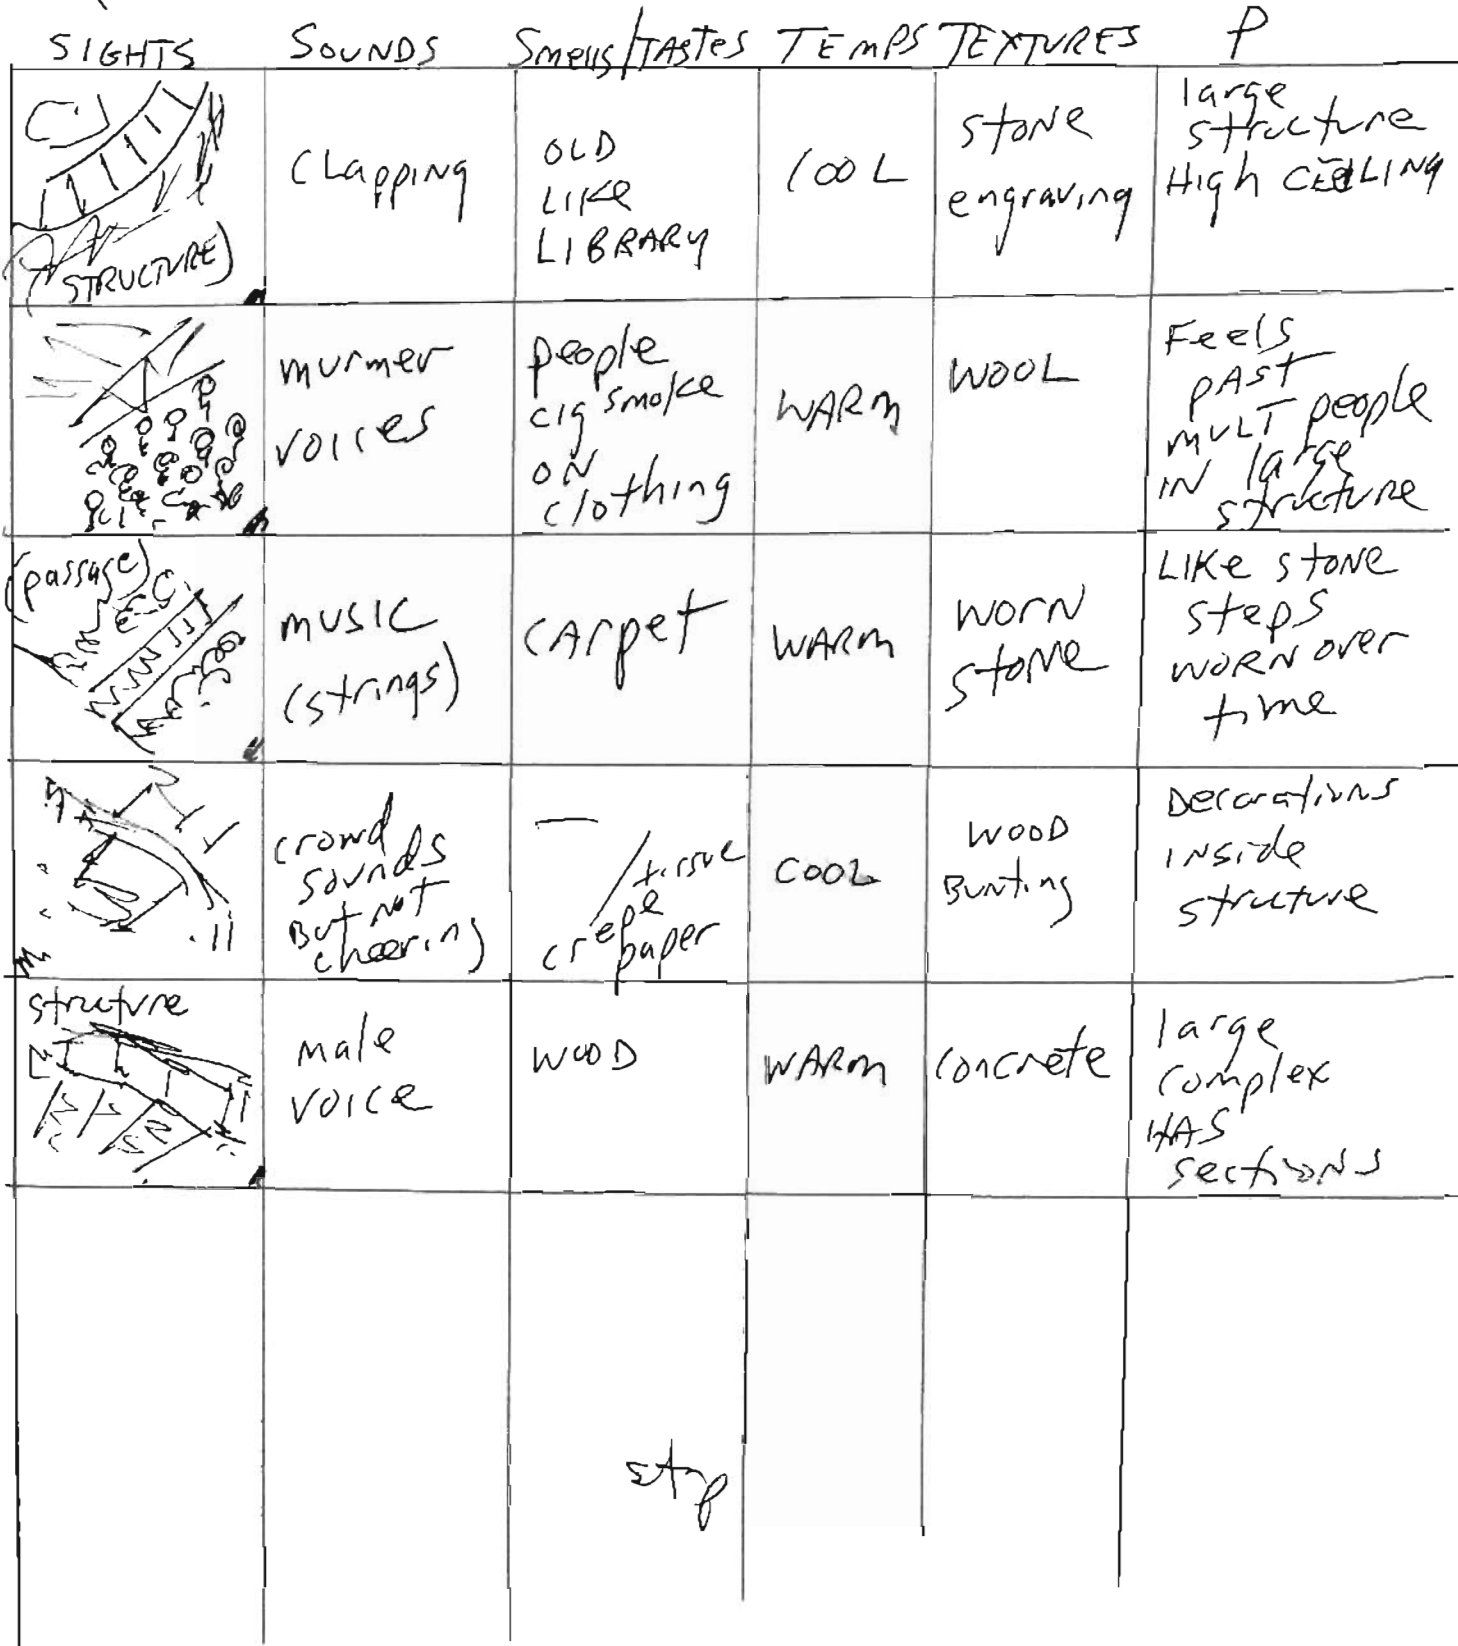 SIGHTS SOUNDS Smells/TAStes TEMPS TEXTURES P
(STRUCTURE)
CLAPPING
OLD
LIKE
LIBRARY
COOL
stone
engraving
large
structure
High CEILING
murmer
voices
people
cig smoke
ON
clothing
WARM
WOOL
Feels
PAST
MULT people
IN large
structure
(passage)
MUSIC
(strings)
CArpet
WARM
WORN
stone
LIKe stone
steps
WORN over
time
crowd
sounds
But Not
cheering
tissue
crepe
paper
COOL
WOOD
Bunting
Decorations
INside
structure
structure
male
voice
WOOD
WARM
concrete
large
complex
HAS
sections